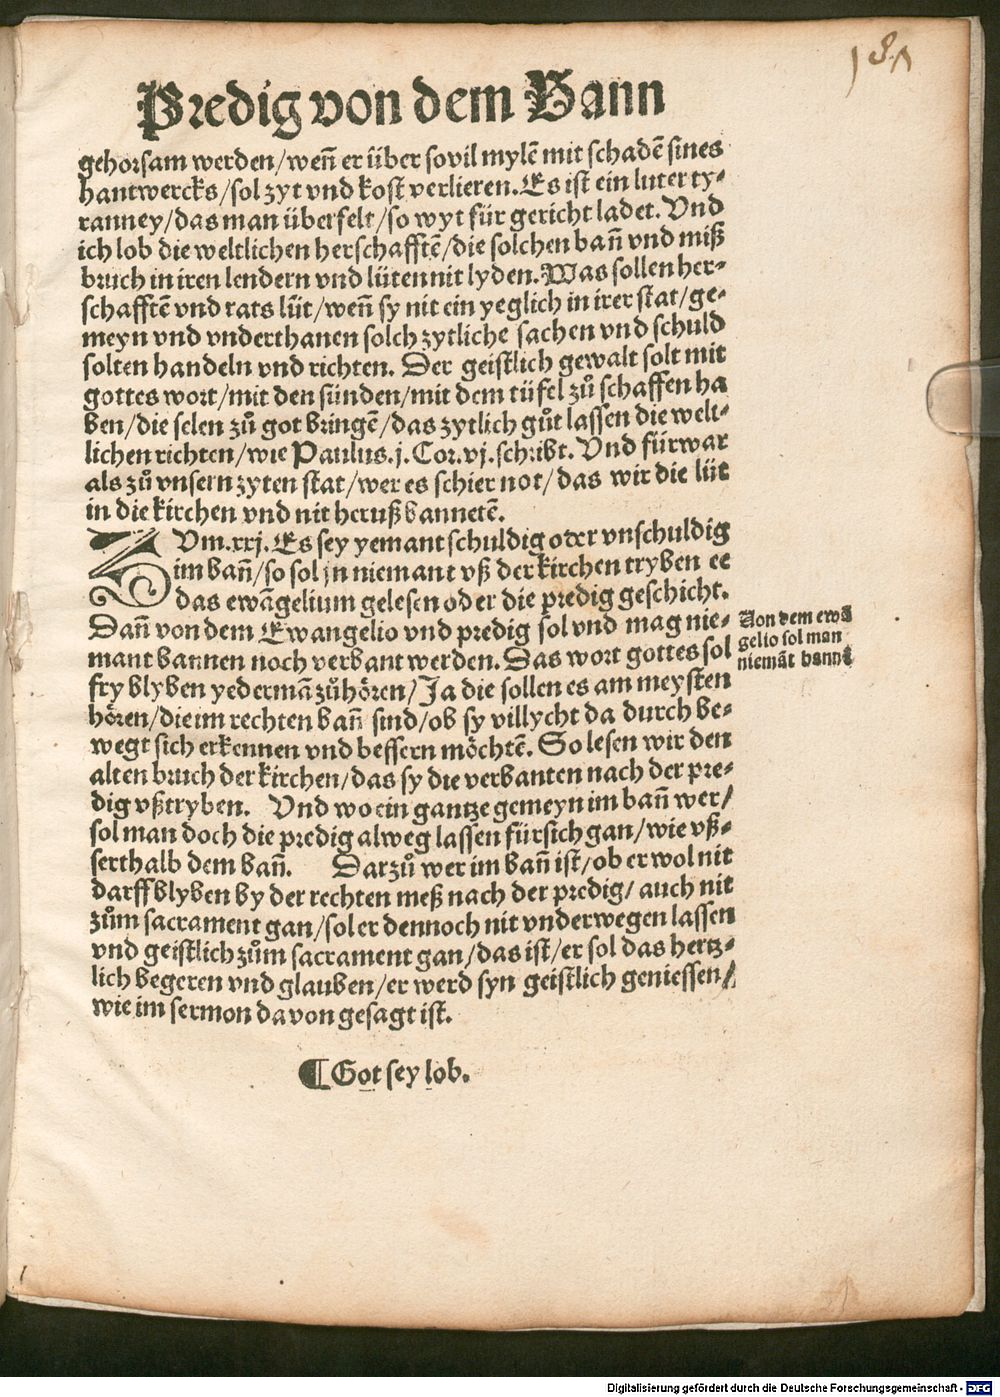 Predig von dem Bann
gehorsam werden/wen̄ er über sovil mylē mit schadē sines
hantwercks/sol zyt vnd kost verlieren. Es ist ein luter ty⸗
ranney/das man überfelt/so wyt für gericht ladet. Vnd
ich lob die weltlichen herschafftē/die solchen ban̄ vnd miß
bruch in iren lendern vnd lüten nit lyden. Was sollen her⸗
schafftē vnd rats lüt/wen̄ sy nit ein yeglich in irer stat/ge⸗
meyn vnd vnderthanen solch zytliche sachen vnd schuld
solten handeln vnd richten. Der geistlich gewalt solt mit
gottes wort/mit den sünden/mit dem tüfel zů schaffen ha
ben/die selen zů got bringē/das zytlich gůt lassen die welt⸗
lichen richten/wie Paulus.j.Cor.vj.schribt. Vnd fürwar
als zů vnsern zyten stat/wer es schier not/das wir die lüt
in die kirchen vnd nit heruß bannetē.
ZVm.xxj. Es sey yemant schuldig oder vnschuldig
im ban̄/so sol jn niemant vß der kirchen tryben ee
das ewāgelium gelesen oder die predig geschicht.
Dan̄ von dem Ewangelio vnd predig sol vnd mag nie⸗
mant bannen noch verbant werden. Das wort gottes sol
fry blyben yedermā zůhören/Ja die sollen es am meysten
hören/die im rechten ban̄ sind/ob sy villycht da durch be⸗
wegt sich erkennen vnd bessern möchtē. So lesen wir den
alten bruch der kirchen/das sy die verbanten nach der pre⸗
dig vßtryben. Vnd wo ein gantze gemeyn im ban̄ wer/
sol man doch die predig alweg lassen fürsich gan/wie vß⸗
serthalb dem ban̄. Darzů wer im ban̄ ist/ob er wol nit
darff blyben by der rechten meß nach der predig/auch nit
zům sacrament gan/sol er dennoch nit vnderwegen lassen
vnd geistlich zům sacrament gan/das ist/er sol das hertz⸗
lich begeren vnd glauben/er werd syn geistlich geniessen/
wie im sermon davon gesagt ist.
¶ Got sey lob.
Von dem ewā
gelio sol man
niemāt bannē
Digitalisierung gefördert durch die Deutsche Forschungsgemeinschaft - DFG